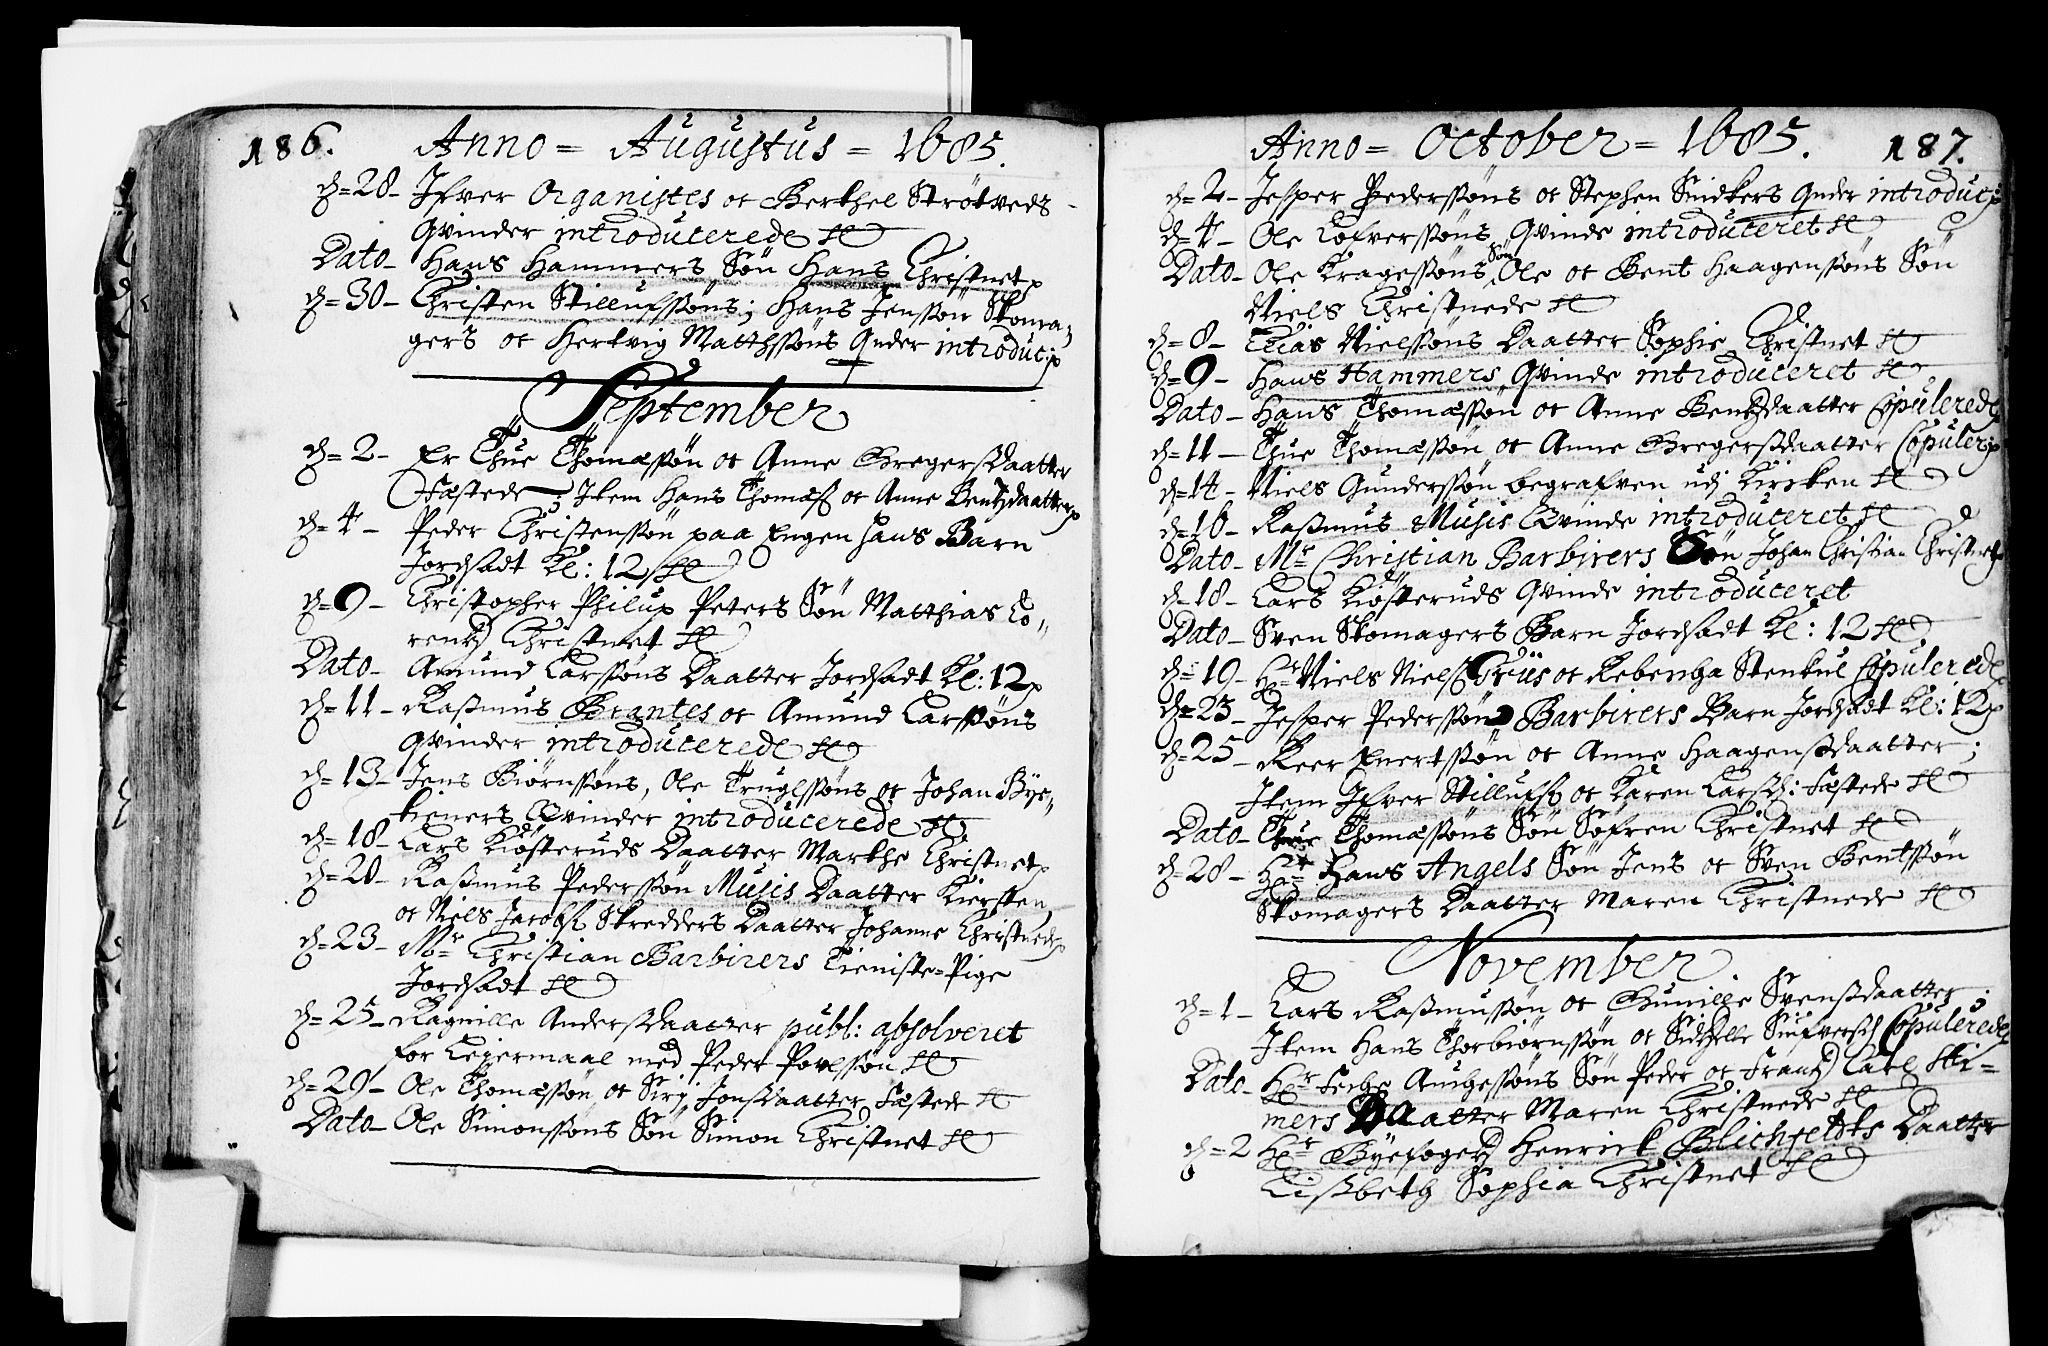 186. Anno = Augustus = 1685.
d = 28 - Ifver Organistes oc Berthel Strøtveds
Qvinder introducerede
Dato - Hans Hammers Søn Hans Christnet
d = 30 - Christen Stillufssøns; Hans Jenssøn Skoma-
gers oc Hertvig Matthssøns Qvder introduc:
September
d = 2 - Er Thue Thomæssøn oc Anne Gregerssdaatter
Fæstede; Item Hans Thomæss oc Anne Bentzdaatter
d = 4 - Peder Christenssøn paa Engen hans Barn
Jordsadt Kl: 12
d = 9 - Christopher Philup Peters Søn Matthias Lo-
rentz Christnet
Dato - Amund Larssøns Daatter Jordsadt Kl: 12
d = 11 - Rassmus Brantes oc Amund Larssøns
Qvinder introducerede
d = 13 - Jens Biørnssøns, Ole Truglssøns oc Johan Bye-
kieners Qvinder introducerede
d = 18 - Lars Kiøsteruds Daatter Marthe Christnet
d = 20 - Rassmus Pederssøn Musis Daatter Kiersten
oc Niels Jacobss Skredders Daatter Johanne Christnede
d = 23 - Mr Christian Barbirers Tieniste-Pige
Jordsadt
d = 25 - Ragnille Anderssdaatter publ: absolveret
for Leiermaal med Peder Povelssøn
d = 29 - Ole Thomæssøn oc Sirj Jonssdaatter Fæstede
Dato - Ole Simonssøns Søn Simon Christnet
Anno = October = 1685. 187.
d = 2 - Jesper Pederssøns oc Stephen Snidkers Qvder introduc:
d = 4 - Ole Lofverssøns Qvinde introduceret
Dato - Ole Kragessøns Søn Ole oc Bent Haagenssøns Søn
Niels Christnede
d = 8 - Elias Nielssøns Daatter Sophie Christnet
d = 9 - Hans Hammers Qvinde introduceret
Dato - Hans Thomæssøn oc Anne Bentzdaatter Copulerede
d = 11 - Thue Thomæssøn oc Anne Gregerssdaatter Copuler:
d = 14 - Niels Gunderssøn begrafven udj Kircken
d = 16 - Rassmus Musis Qvinde introduceret
Dato - Mr Christian Barbirers Søn Johan Christian Christnet
d = 18 - Lars Kiøsteruds Qvinde introduceret
Dato - Sven Skomagers Barn Jordsadt Kl: 12
d = 19 - Hr Niels Nielss Criis oc Rebencha Stenkul Copulerede
d = 23 - Jesper Pederssøn Barbirers Barn Jordsadt Kl: 12
d = 25 - Reer Evertssøn oc Anne Haagenssdaatter;
Item Ifver Stillufss oc Karen Larssd: Fæstede
Dato - Thue Thomæssøns Søn Søfren Christnet
d = 28 - Hr Hans Angels Søn Jens oc Sven Bentssøn
Skomagers Daatter Maren Christnede
November
d = 1 - Lars Rassmussøn oc Gunille Svenssdaatter;
Item Hans Thorbiørnssøn oc Sidtzelle Siufverssd Copulerede
Dato - Hr Feche Auchessøns Søn Peder oc Frantz Carl Sti-
mers Daatter Maren Christnede
d = 2 Hr Byefogetz Henrick Blichfeldts Daatter
Lissbeth Sophia Christnet